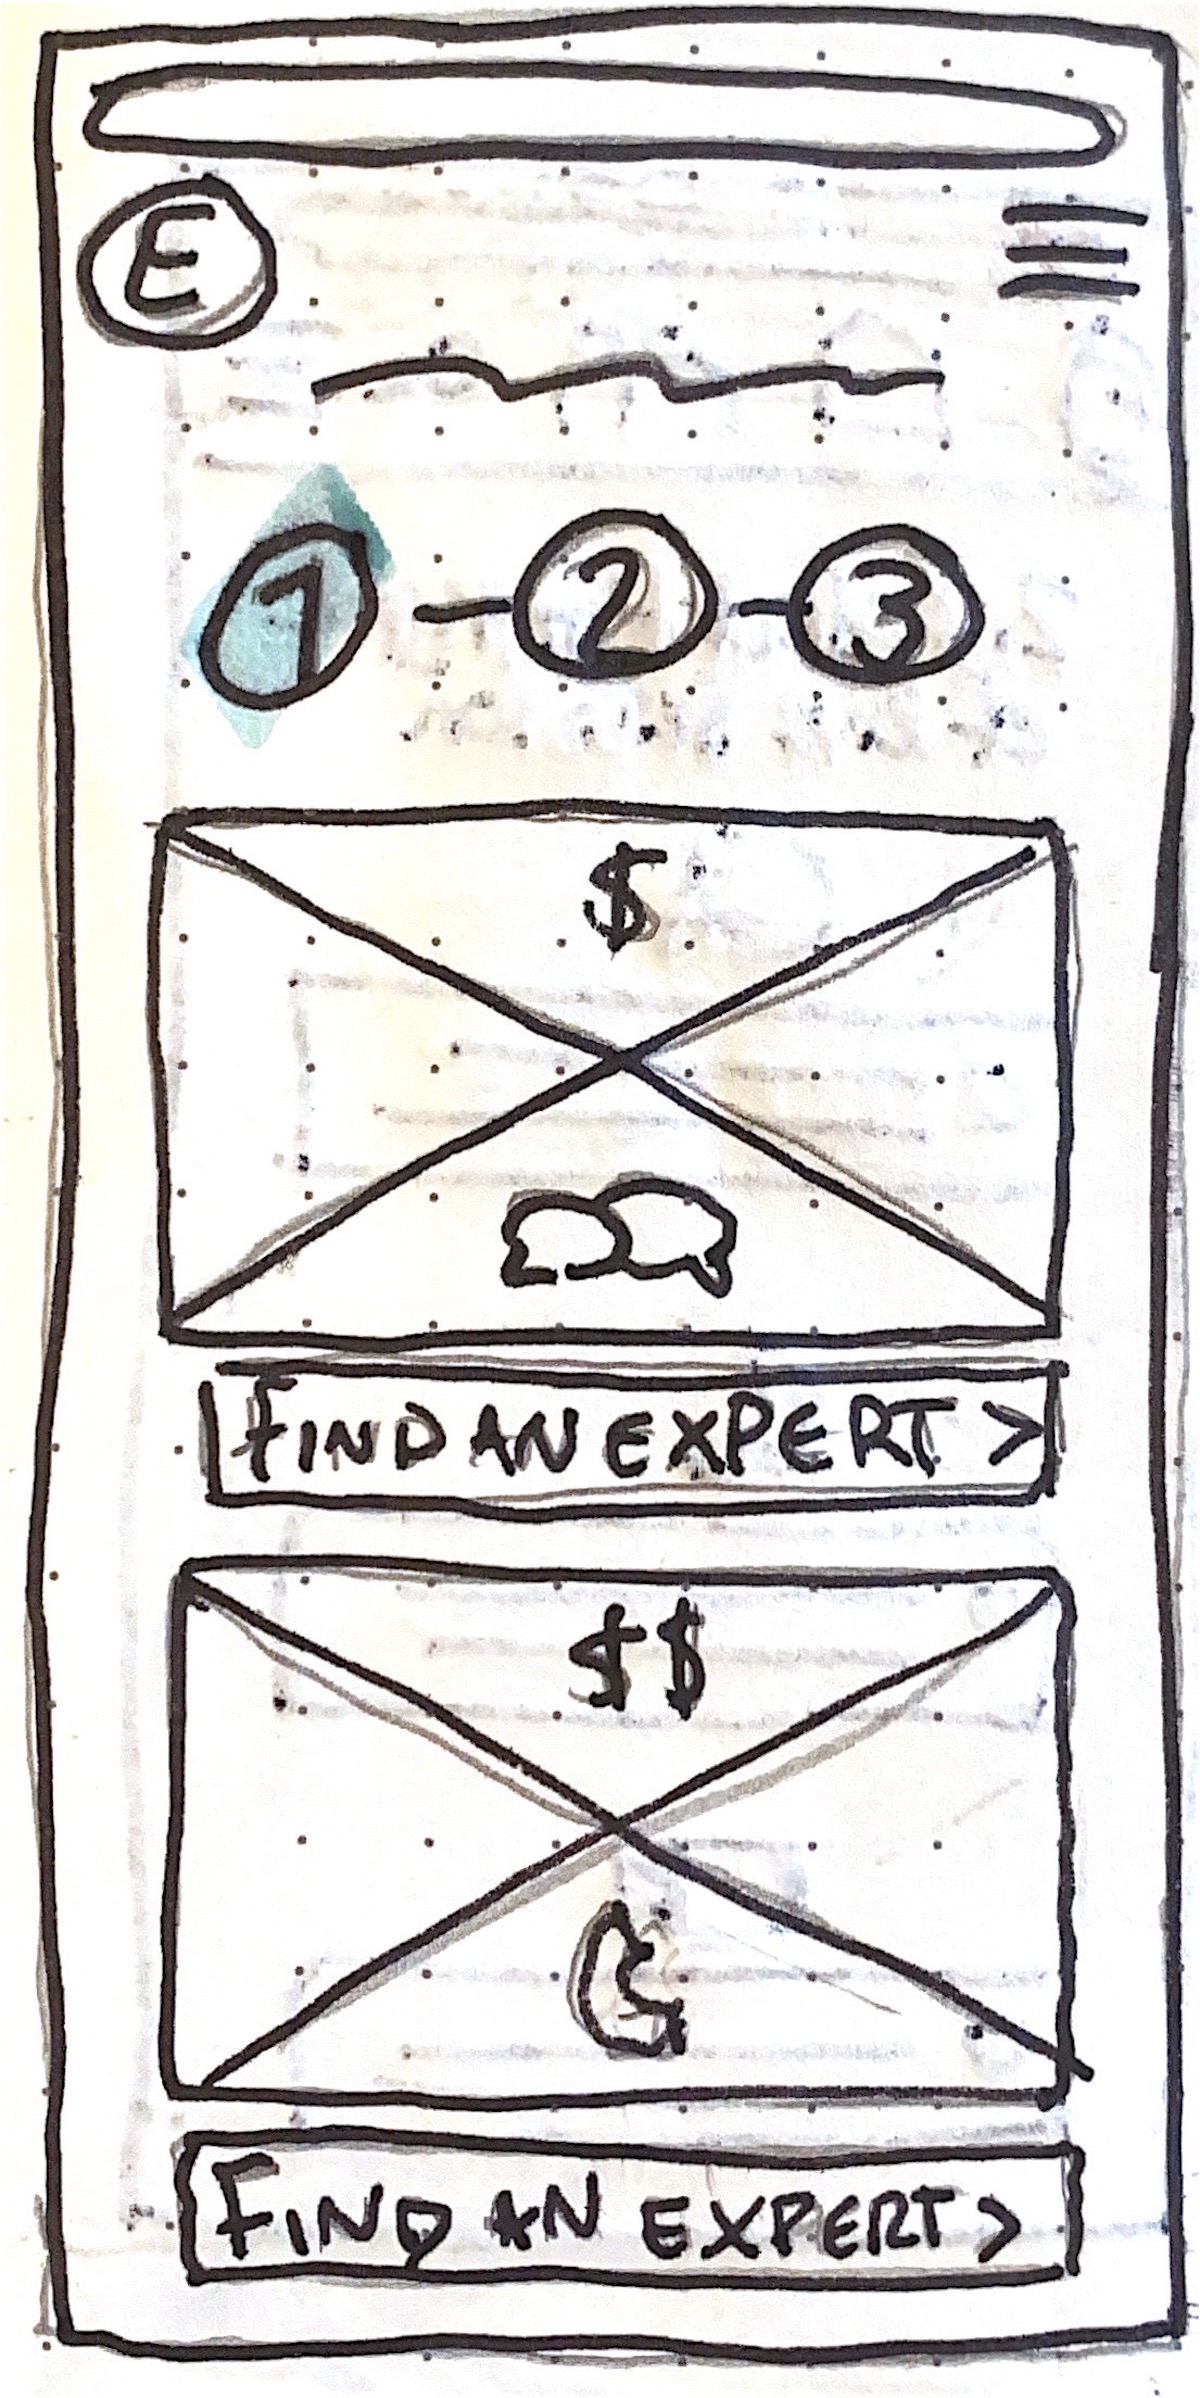 E
1 - 2 - 3
$
FIND AN EXPERT >
$$
FIND AN EXPERT >